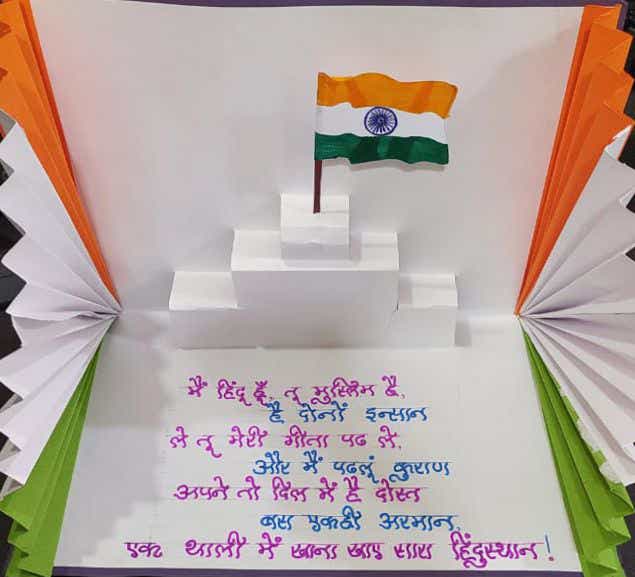 मैं हिंदू हूँ, तू मुस्लिम है,
है दोनों इन्सान
ले तू मेरी गीता पढ ले,
और मैं पढलूं कुराण
अपने तो दिल में है दोस्त
बस एकही अरमान,
एक थाली में खाना खाए सारा हिंदुस्थान!